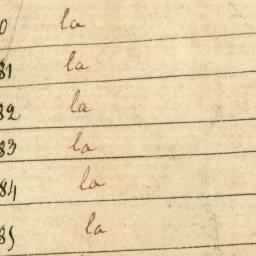 0 la
81 la
82 la
83 la
84 la
85 la